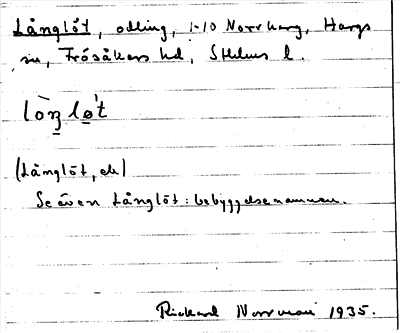 Långlöt, odling, 1-10 Norrharg, Hargs
sn, Frösåkers hd, Sthlms l.
lòŋ lø̀t
(Långlöt, ek)
Se även Långlöt: bebyggelsenamnen.
Rickard Norrman 1935.